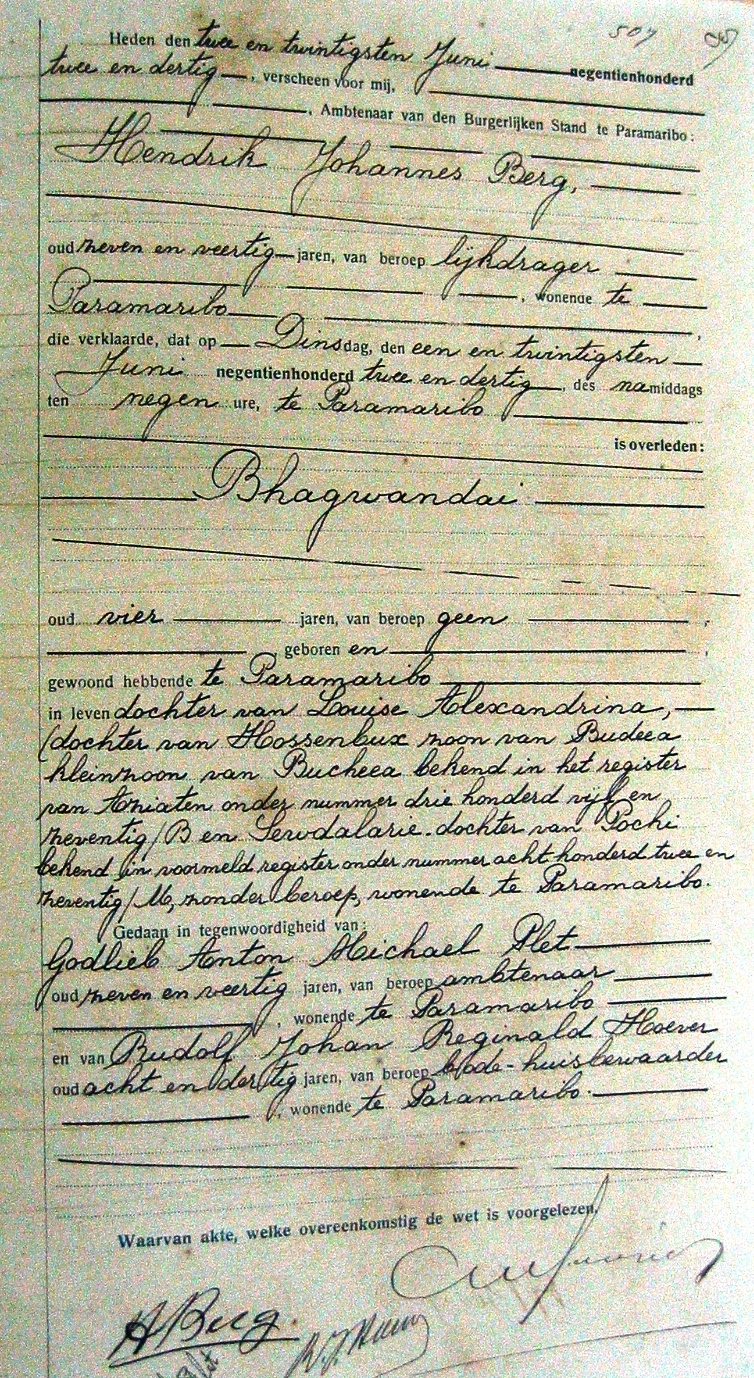 507
Heden den twee en twintigsten Juni negentienhonderd
twee en dertig, verscheen voor mij,
, Ambtenaar van den Burgerlijken Stand te Paramaribo:
Hendrik Johannes Berg,
oud zeven en veertig jaren, van beroep lijkdrager
, wonende te
Paramaribo,
die verklaarde, dat op Dinsdag, den een en twintigsten
Juni negentienhonderd twee en dertig, des namiddags
ten negen ure, te Paramaribo
is overleden:
Bhagwandai
oud vier jaren, van beroep geen,
, geboren en,
gewoond hebbende te Paramaribo
in leven dochter van Louise Alexandrina,
(dochter van Hossenbux zoon van Budeea
kleinzoon van Bucheea bekend in het register
van Aziaten onder nummer drie honderd vijf en
zeventig/B en Sewdalarie dochter van Pochi
bekend in voormeld register onder nummer acht honderd twee en
zeventig/M, zonder beroep, wonende te Paramaribo.
Gedaan in tegenwoordigheid van:
Godlieb Anton Michael Plet
oud zeven en veertig jaren, van beroep ambtenaar
, wonende te Paramaribo
en van Rudolf Johan Reginald Hoever
oud acht en dertig jaren, van beroep bode-huisbewaarder
, wonende te Paramaribo.
Waarvan akte, welke overeenkomstig de wet is voorgelezen.
H Berg.